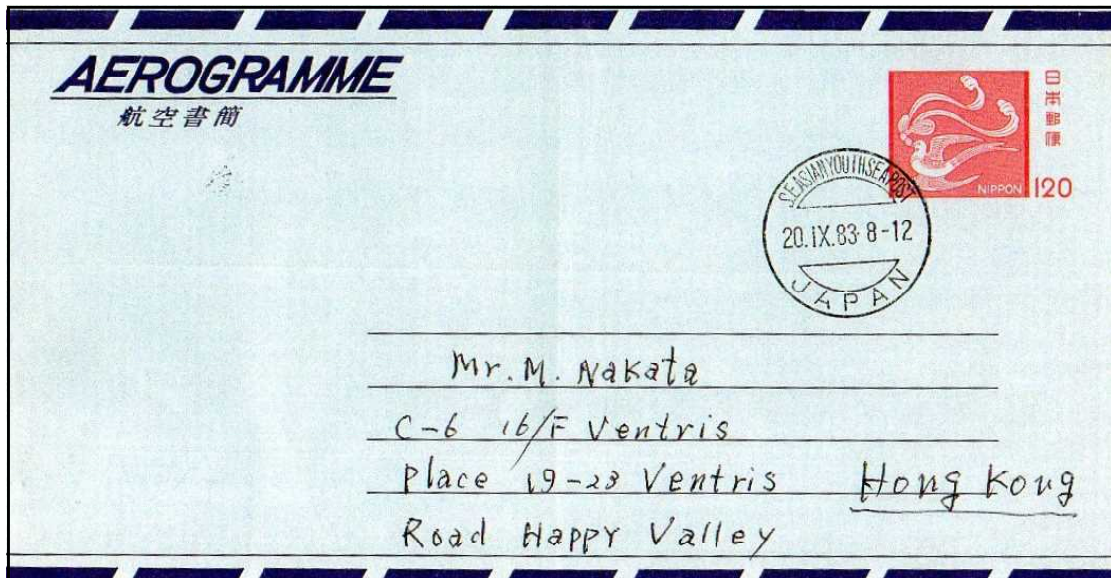 AEROGRAMME
航空書簡
日本郵便
NIPPON 120
S.E.ASIAN YOUTH SEA POST
20.IX.83.8-12
JAPAN
Mr. M. Nakata
C-6 16/F Ventris
place 19-23 Ventris
Hong Kong
Road Happy Valley